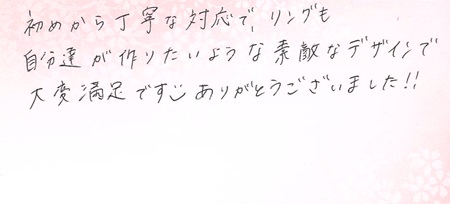 初めから丁寧な対応で、リングも
自分達が作りたいような素敵なデザインで
大変満足です ありがとうございました!!